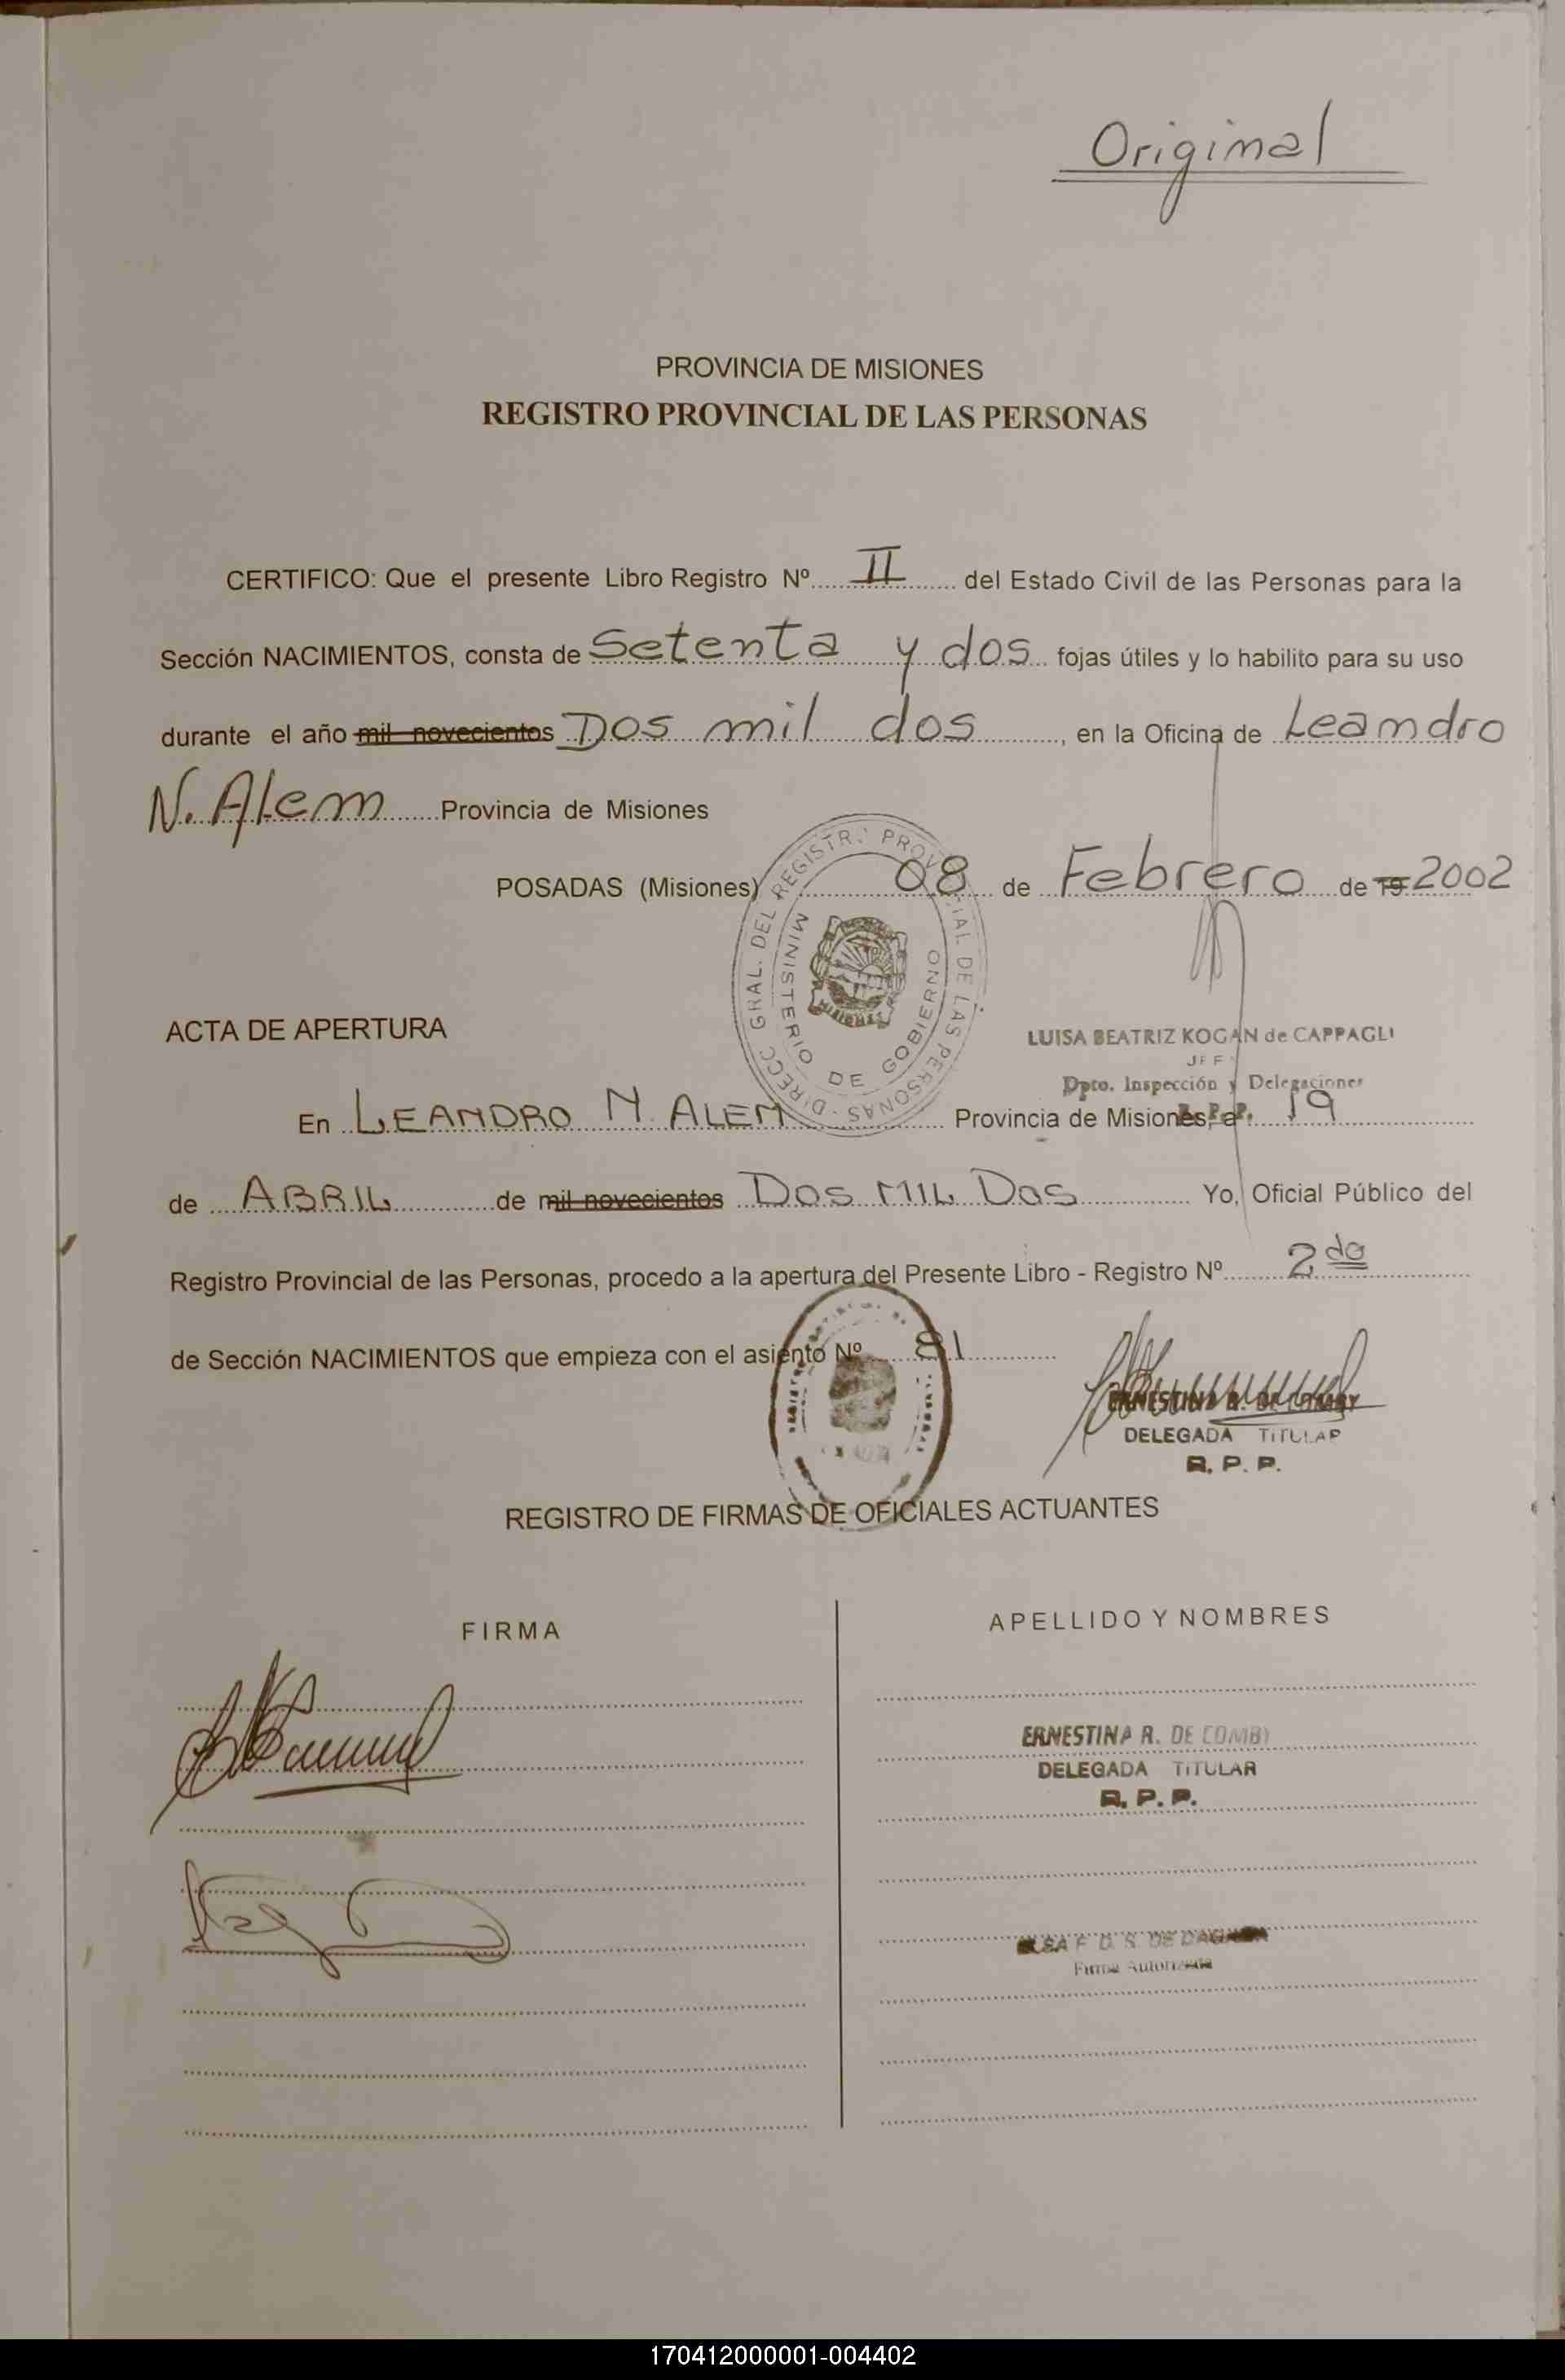 Original
PROVINCIA DE MISIONES
REGISTRO PROVINCIAL DE LAS PERSONAS
CERTIFICO: Que el presente Libro Registro Nº II del Estado Civil de las Personas para la
Sección NACIMIENTOS, consta de Setenta y dos fojas útiles y lo habilito para su uso
durante el año mil novecientos Dos mil dos, en la Oficina de Leandro
N. Alem Provincia de Misiones
POSADAS (Misiones) 08 de Febrero de 19 2002
DIRECC. GRAL. DEL REGISTRO PROVINCIAL DE LAS PERSONAS
MINISTERIO DE GOBIERNO
MISIONES
ACTA DE APERTURA
LUISA BEATRIZ KOGAN de CAPPAGLI
JEF
Dpto. Inspección y Delegaciones
R. P. P.
En LEANDRO N. ALEM Provincia de Misiones, a 19
de ABRIL de mil novecientos DOS MIL DOS Yo, Oficial Público del
Registro Provincial de las Personas, procedo a la apertura del Presente Libro - Registro Nº 2do
de Sección NACIMIENTOS que empieza con el asiento Nº 81
ERNESTINA R. DE
DELEGADA TITULAR
R. P. P.
REGISTRO DE FIRMAS DE OFICIALES ACTUANTES
FIRMA
APELLIDO Y NOMBRES
ERNESTINA R. DE COMBY
DELEGADA TITULAR
R. P. P.
ELSA F. D. S. DE
Firma Autorizada
170412000001-004402